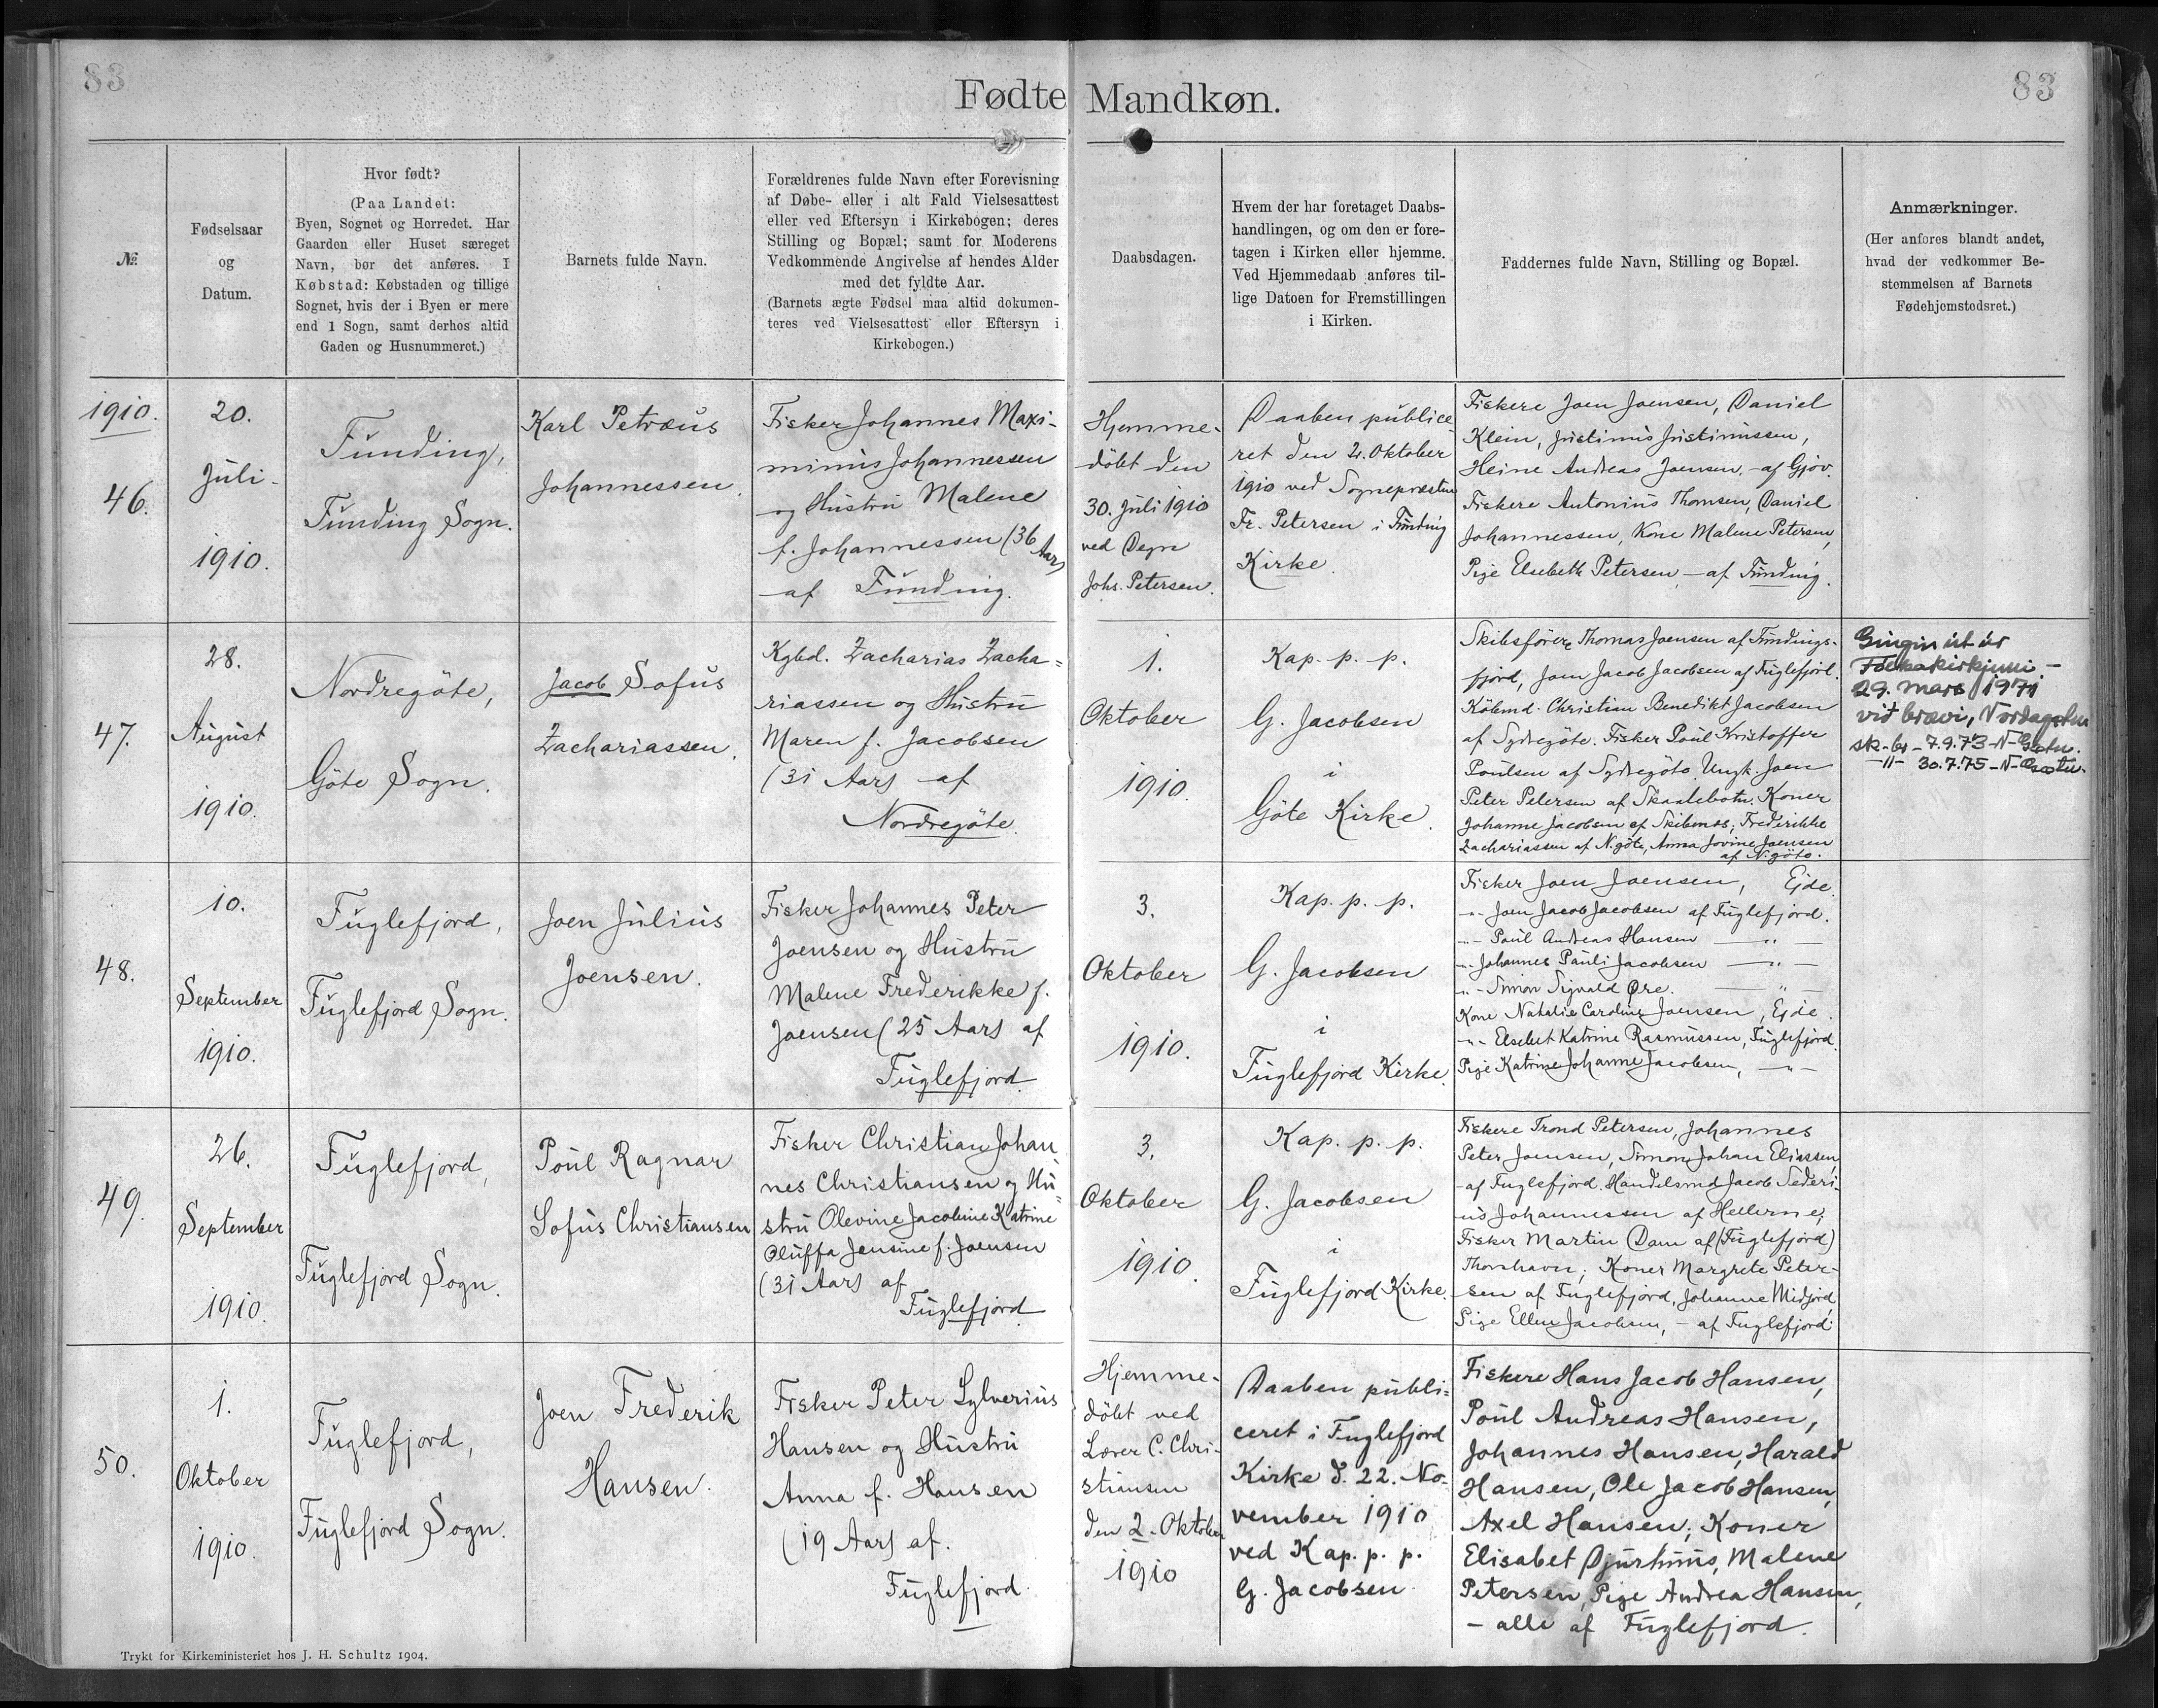 83
Fødte Mandkøn.
83
№
Fødselsaar
og
Datum.
Hvor født?
(Paa Landet:
Byen, Sognet og Herredet. Har
Gaarden eller Huset særeget
Navn, bør det anføres. I
Købstad: Købstaden og tillige
Sognet, hvis der i Byen er mere
end 1 Sogn, samt derhos altid
Gaden og Husnummeret.)
Barnets fulde Navn.
Forældrenes fulde Navn efter Forevisning
af Døbe- eller i alt Fald Vielsesattest
eller ved Eftersyn i Kirkebogen; deres
Stilling og Bopæl; samt for Moderens
Vedkommende Angivelse af hendes Alder
med det fyldte Aar.
(Barnets ægte Fødsel maa altid dokumen-
teres ved Vielsesattest eller Eftersyn i
Kirkebogen.)
Daabsdagen.
Hvem der har foretaget Daabs-
handlingen, og om den er fore-
tagen i Kirken eller hjemme.
Ved Hjemmedaab anføres til-
lige Datoen for Fremstillingen
i Kirken.
Faddernes fulde Navn, Stilling og Bopæl.
Anmærkninger.
(Her anføres blandt andet,
hvad der vedkommer Be-
stemmelsen af Barnets
Fødehjemstedsret.)
1910.
46.
20.
Juli
1910.
Funding,
Funding Sogn.
Karl Petræus
Johannessen.
Fisker Johannes Maxi-
minus Johannessen
og Hustru Malene
f. Johannessen (36 Aar)
af Funding.
Hjemme-
døbt den
30. Juli 1910
ved Degn
Johs. Petersen.
Daaben publice-
ret den 2. Oktober
1910 ved Sognepræsten
Fr. Petersen i Funding
Kirke.
Fiskere Joen Joensen, Daniel
Klein, Justinus Justinussen,
Heine Andreas Joensen, - af Gjov.
Fiskere Antonius Thomsen, Daniel
Johannessen, Kone Malene Petersen,
Pige Elsebeth Petersen, - af Funding.
47.
28.
August
1910.
Nordregöte,
Göte Sogn.
Jacob Sofus
Zachariassen.
Kgbd. Zacharias Zacha=
riassen og Hustru
Maren f. Jacobsen
(31 Aar) af
Nordregöte.
1.
Oktober
1910.
Kap. p. p.
G. Jacobsen
i
Göte Kirke.
Skibsförer Thomas Joensen af Fundings-
fjord, Joen Jacob Jacobsen af Fuglefjord.
Købmd. Christian Benedikt Jacobsen
af Sydregöte. Fisker Poul Kristoffer
Poulsen af Sydregöte. Ungk. Joen
Peter Petersen af Skaalebotn. Koner
Johanne Jacobsen af Skibenæs; Frederikke
Zachariassen af N.göte, Anna Jovine Joensen
af N.göte.
Gingin út úr
Fólkakirkjuni -
29. mars 1971
við brævi, Nordagøtu
sk-br - 7.9.73 - N-Gøtu.
-"- 30.7.75 - N-Gøtu.
48.
10.
September
1910.
Fuglefjord,
Fuglefjord Sogn.
Joen Julius
Joensen.
Fisker Johannes Peter
Joensen og Hustru
Malene Frederikke f.
Joensen (25 Aar) af
Fuglefjord.
3.
Oktober
1910.
Kap. p. p.
G. Jacobsen
i
Fuglefjord Kirke.
Fisker Joen Joensen, Ejde.
-"- Joen Jacob Jacobsen af Fuglefjord.
-"- Poul Andreas Hansen -"-
-"- Johannes Pauli Jacobsen -"-
-"- Simon Sigvald Øre. -"-
Kone Natalie Caroline Joensen, Ejde.
-"- Elsebet Katrine Rasmussen, Fuglefjord.
Pige Katrine Johanne Jacobsen, -"-
49.
26.
September
1910.
Fuglefjord,
Fuglefjord Sogn.
Poul Ragnar
Sofus Christiansen
Fisker Christian Johan
nes Christiansen og Hu=
stru Olevine Jacobine Katrine
Oluffa Jensine f. Joensen
(31 Aar) af
Fuglefjord
3.
Oktober
1910.
Kap. p. p.
G. Jacobsen
i
Fuglefjord Kirke.
Fiskere Trond Petersen, Johannes
Peter Joensen, Simon Johan Eliassen,
- af Fuglefjord. Handelsmd Jacob Sederi-
us Johannessen af Hellerne;
Fisker Martin Dam af (Fuglefjord)
Thorshavn; Koner Margrete Peter-
sen af Fuglefjord, Johanne Midjord,
Pige Ellen Jacobsen, - af Fuglefjord.
50.
1.
Oktober
1910.
Fuglefjord,
Fuglefjord Sogn.
Joen Frederik
Hansen.
Fisker Peter Sylverius
Hansen og Hustru
Anna f. Hansen
(19 Aar) af
Fuglefjord.
Hjemme-
døbt ved
Lærer C. Chri-
stiansen
den 2. Oktober
1910
Daaben publi=
ceret i Fuglefjord
Kirke d. 22. No-
vember 1910
ved Kap. p. p.
G. Jacobsen.
Fiskere Hans Jacob Hansen,
Poul Andreas Hansen,
Johannes Hansen, Harald
Hansen, Ole Jacob Hansen,
Axel Hansen; Koner
Elisabet Djurhuus, Malene
Petersen, Pige Andrea Hansen,
- alle af Fuglefjord.
Trykt for Kirkeministeriet hos J. H. Schultz 1904.